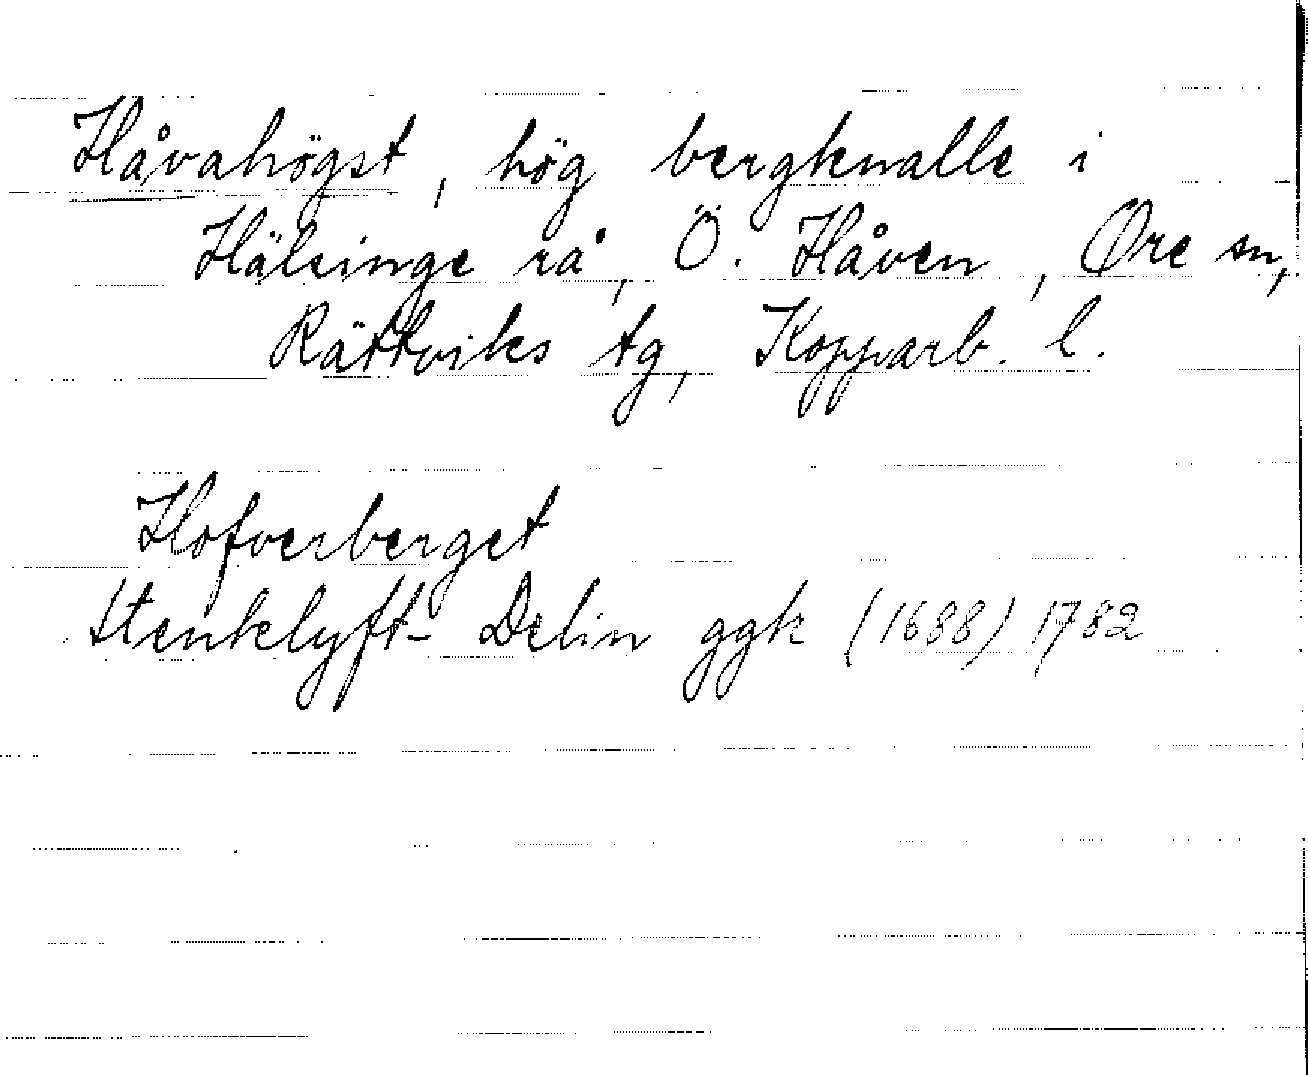 Håvahögst, hög bergknalle i
Hälsinge rå, Ö. Håven, Ore sn,
Rättviks tg, Kopparb. l.
Hofverberget
Stenklyft- Delin ggk (1688) 1782